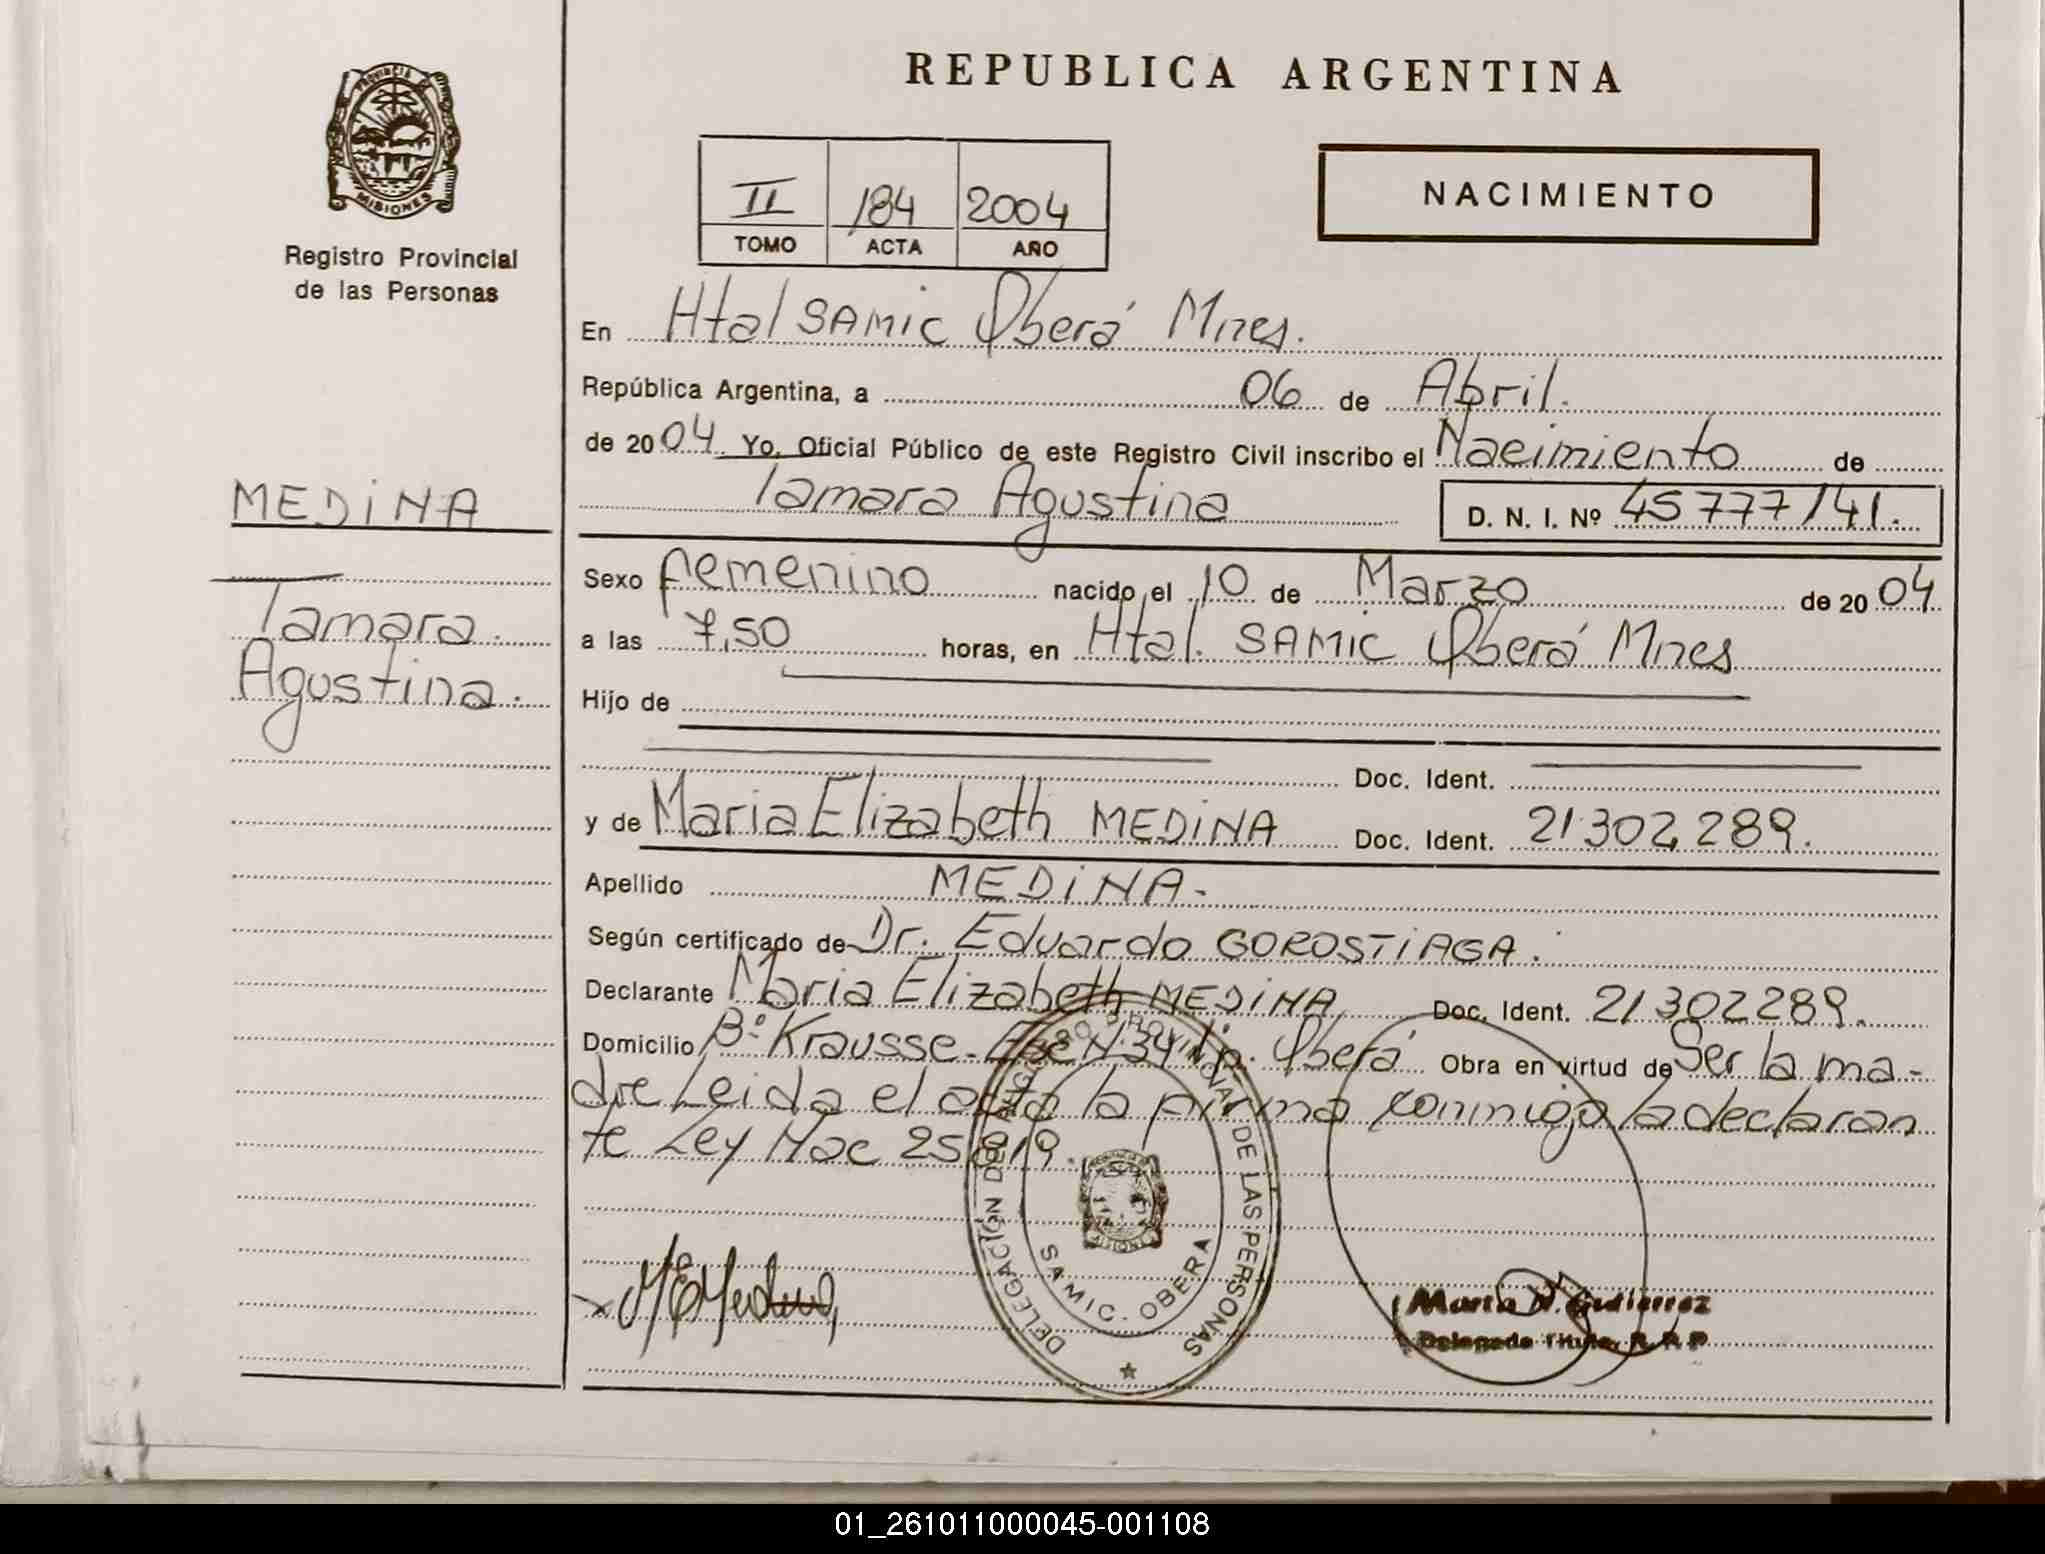 REPUBLICA ARGENTINA
PROVINCIA DE
MISIONES
Registro Provincial
de las Personas
II 184 2004
TOMO ACTA AÑO
NACIMIENTO
En Htal SAMIC Oberá Mnes.
República Argentina, a 06 de Abril.
de 2004 Yo, Oficial Público de este Registro Civil inscribo el Nacimiento de
Tamara Agustina D. N. I. Nº 45777141.
MEDINA
Tamara
Agustina.
Sexo femenino nacido el 10 de Marzo de 2004
a las 7,50 horas, en Htal. SAMIC Oberá Mnes
Hijo de
Doc. Ident.
y de Maria Elizabeth MEDINA Doc. Ident. 21302289.
Apellido MEDINA-
Según certificado de Dr. Eduardo GOROSTIAGA.
Declarante Maria Elizabeth MEDINA Doc. Ident. 21302289.
Domicilio Bº Krausse- Oberá Obra en virtud de Ser la ma-
dre Leida el acta la firma conmigo la declaran
te Ley Nac 25819.
DELEGACIÓN DEL REGISTRO PROVINCIAL DE LAS PERSONAS
SAMIC. OBERA
MEMedina
Marta N. Gutierrez
Delegada Titular R.P.P
01_261011000045-001108